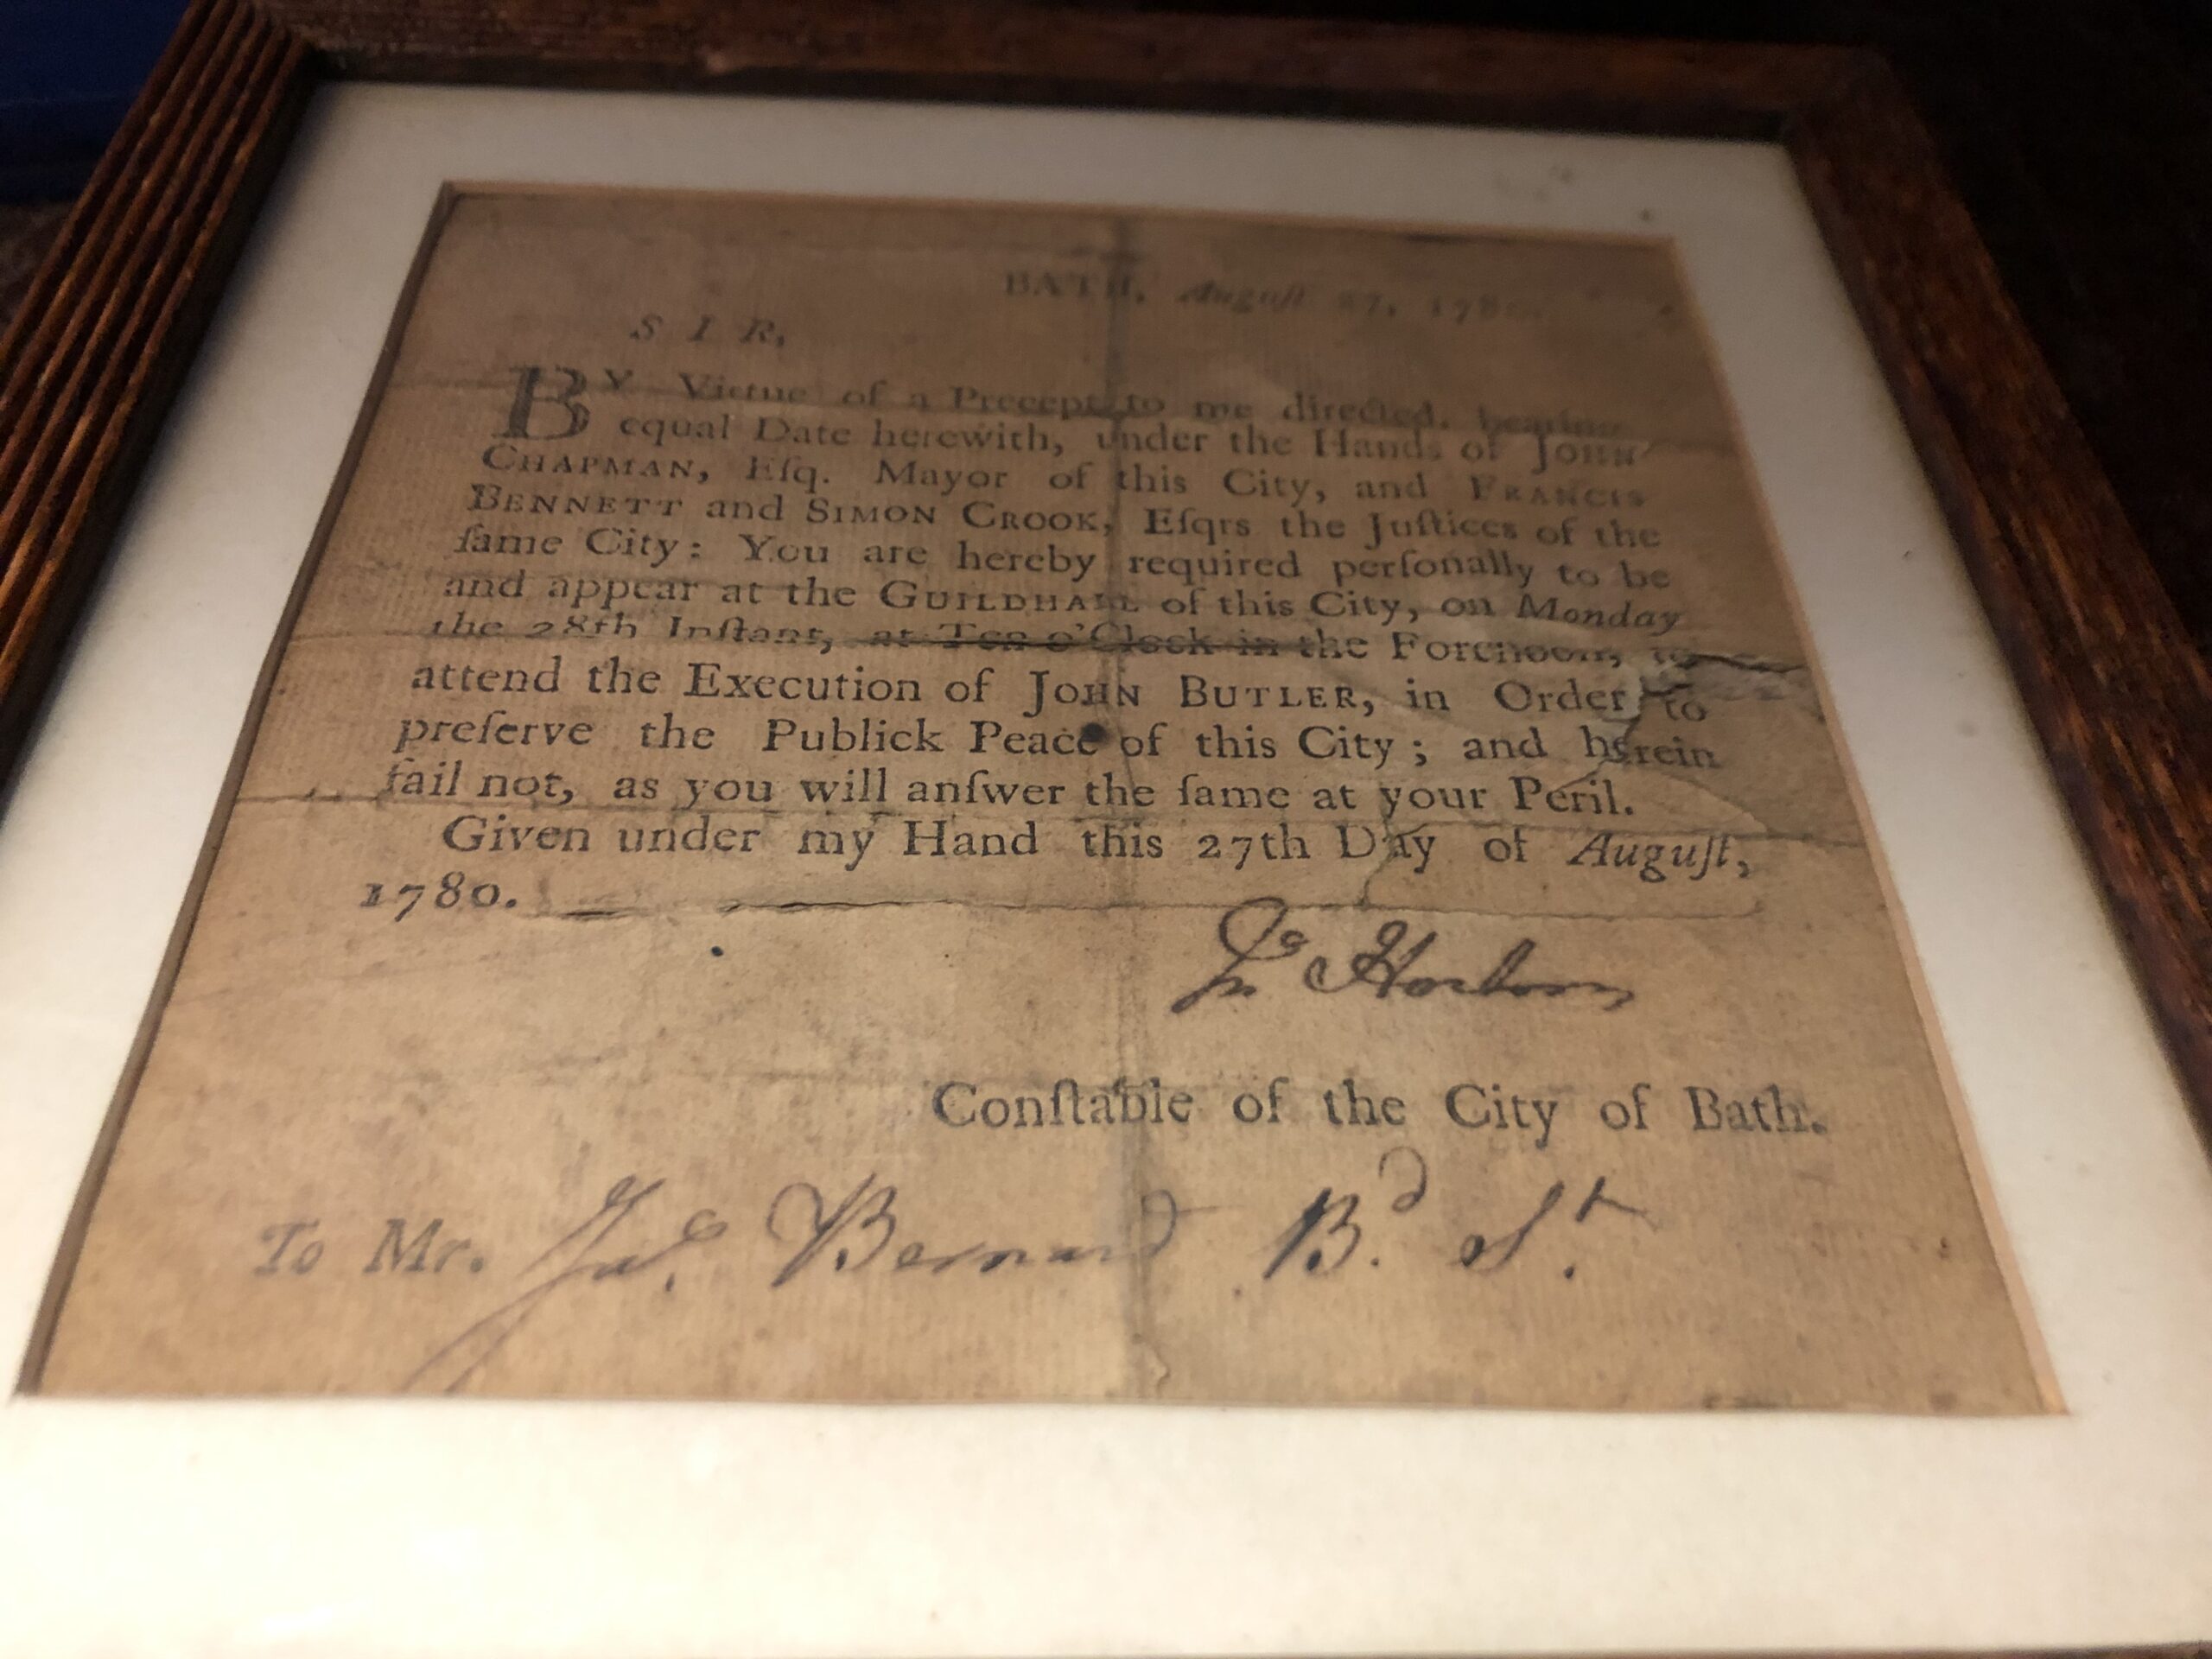 BATH, Auguſt 27, 1780.
SIR,
BY Virtue of a Precept to me directed, bearing
equal Date herewith, under the Hands of JOHN
CHAPMAN, Eſq. Mayor of this City, and FRANCIS
BENNETT and SIMON CROOK, Eſqrs the Juſtices of the
ſame City: You are hereby required perſonally to be
and appear at the GUILDHALL of this City, on Monday
the 28th Inſtant, at Ten o'Clock in the Forenoon, to
attend the Execution of JOHN BUTLER, in Order to
preſerve the Publick Peace of this City; and herein
fail not, as you will anſwer the ſame at your Peril.
Given under my Hand this 27th Day of Auguſt,
1780.
Horton
Conſtable of the City of Bath.
To Mr. Jas. Bernard B.d St.